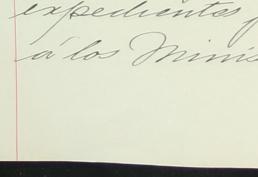 expedientes
á los Minis